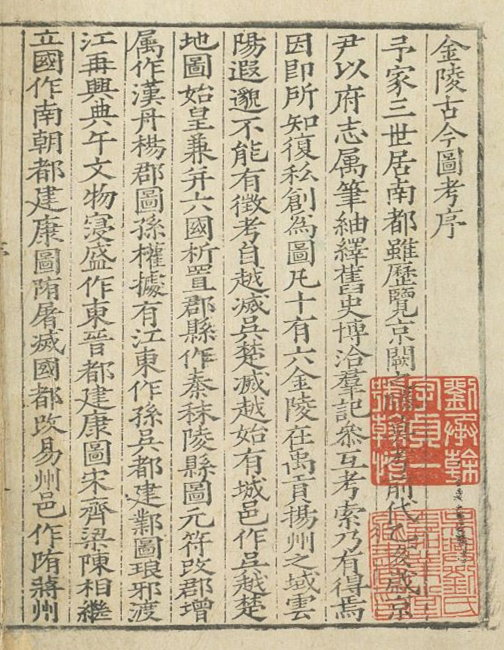 金陵古今圖考序
予家三世居南都雖歷覽京闕前代乙亥歲京
尹以府志属筆紬繹舊史博洽羣記叅互考索乃有得焉
因即所知復私創為圖凢十有六金陵在禹貢揚州之域雲
陽遐邈不能有徵考自越滅吳楚滅越始有城邑作吳越楚
地圖始皇兼并六國析置郡縣作秦秣陵縣圖元符改郡增
属作漢丹楊郡圖孫權據有江東作孫吳都建鄴圖琅邪渡
江再興典午文物寖盛作東晉都建康圖宋齊梁陳相繼
立國作南朝都建康圖隋屠滅國都改易州邑作隋蔣州
劉承榦
字貞一
號翰怡